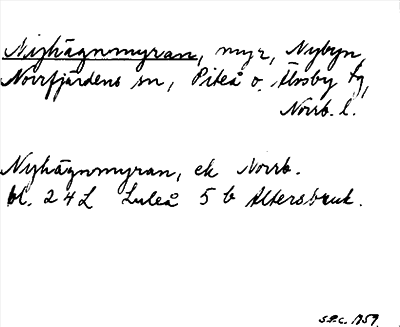 Nyhägnmyran, myr, Nybyn,
Norrfjärdens sn, Piteå o. Älvsby tg,
Norrb. l.
Nyhägnmyran, ek Norrb.
bl. 24 L Luleå 5 b Altersbruk.
S.P.C. 1959.